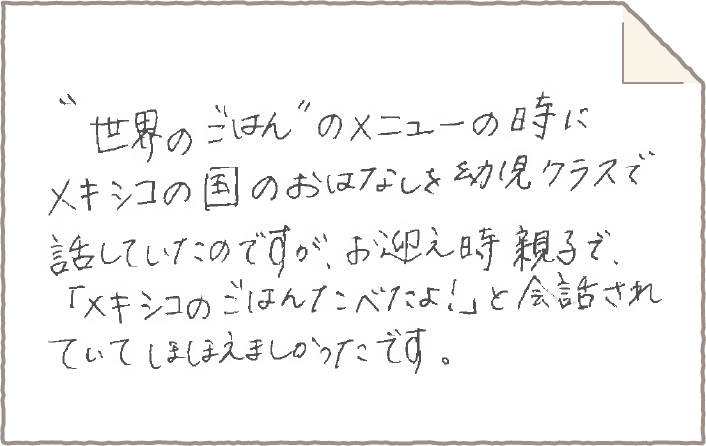 “世界のごはん”のメニューの時に
メキシコの国のおはなしを幼児クラスで
話していたのですが、お迎え時親子で、
「メキシコのごはんたべたよ！」と会話され
ていてほほえましかったです。